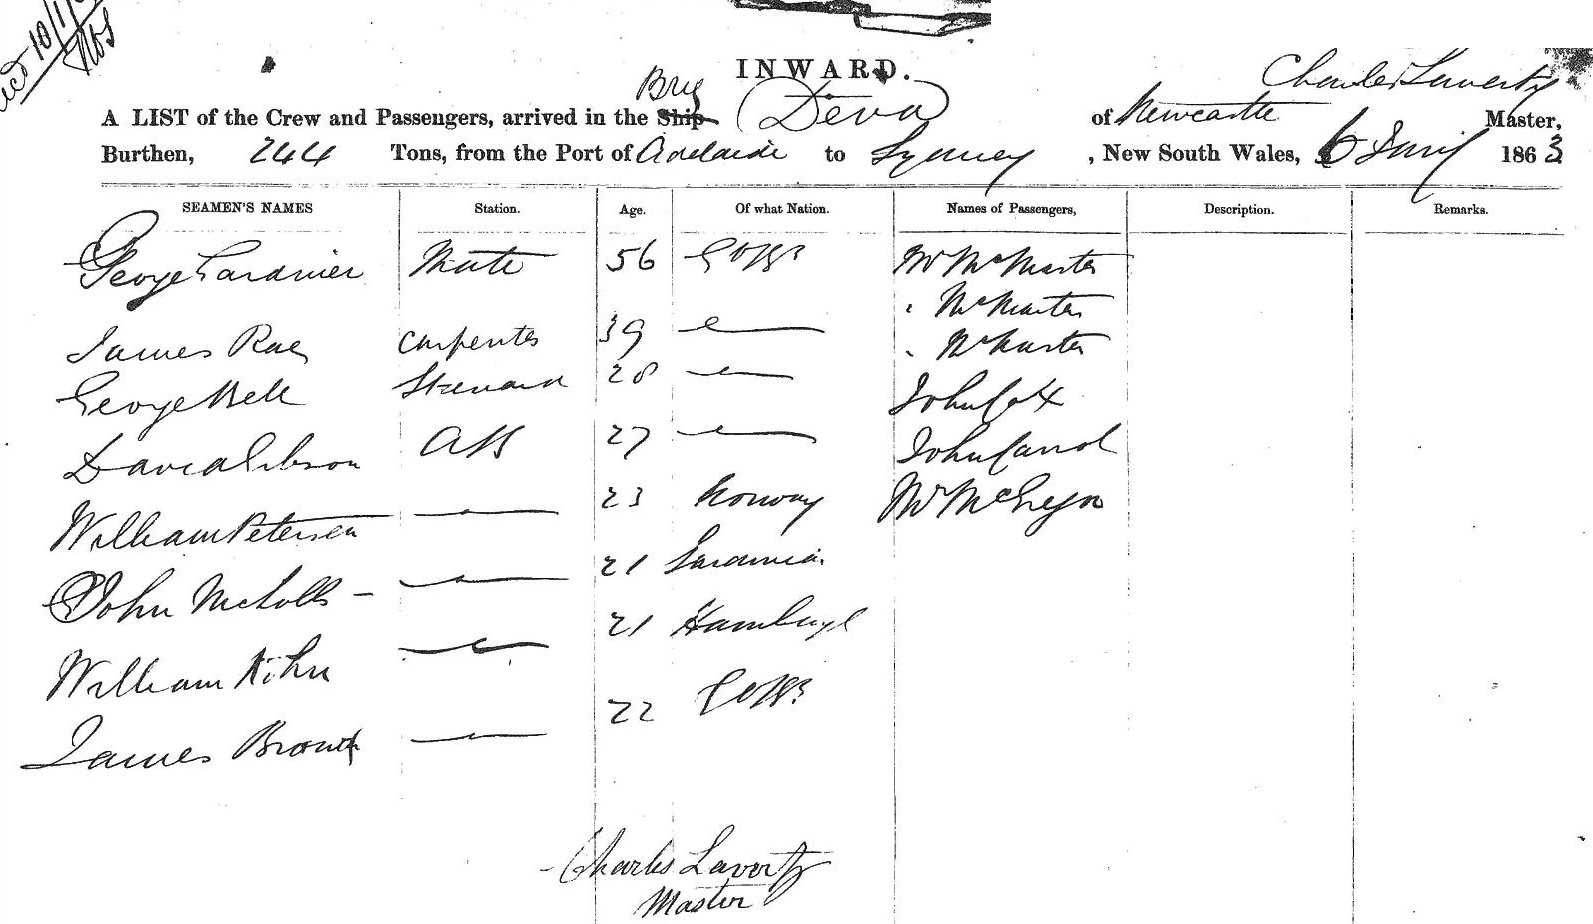 INWARD.
Charles Laverty
A LIST of the Crew and Passengers, arrived in the Ship Brig Deva of Newcastle Master,
Burthen, 244 Tons, from the Port of Adelaide to Sydney , New South Wales, 1863
SEAMEN'S NAMES Station. Age. Of what Nation. Names of Passengers, Description. Remarks.
George Gardiner Mate 56 Mr McMaster
" McMaster
James Rae Carpenter 39 " McMaster
George Bell Steward 28 John Cox
David Gibson AB 27 John Carrol
William Petersen 23 Norway Mr McGregor
John Nicholls 21 Sardinia
William Kohn 21 Hamburgh
James Brown 22
Charles Laverty
Master